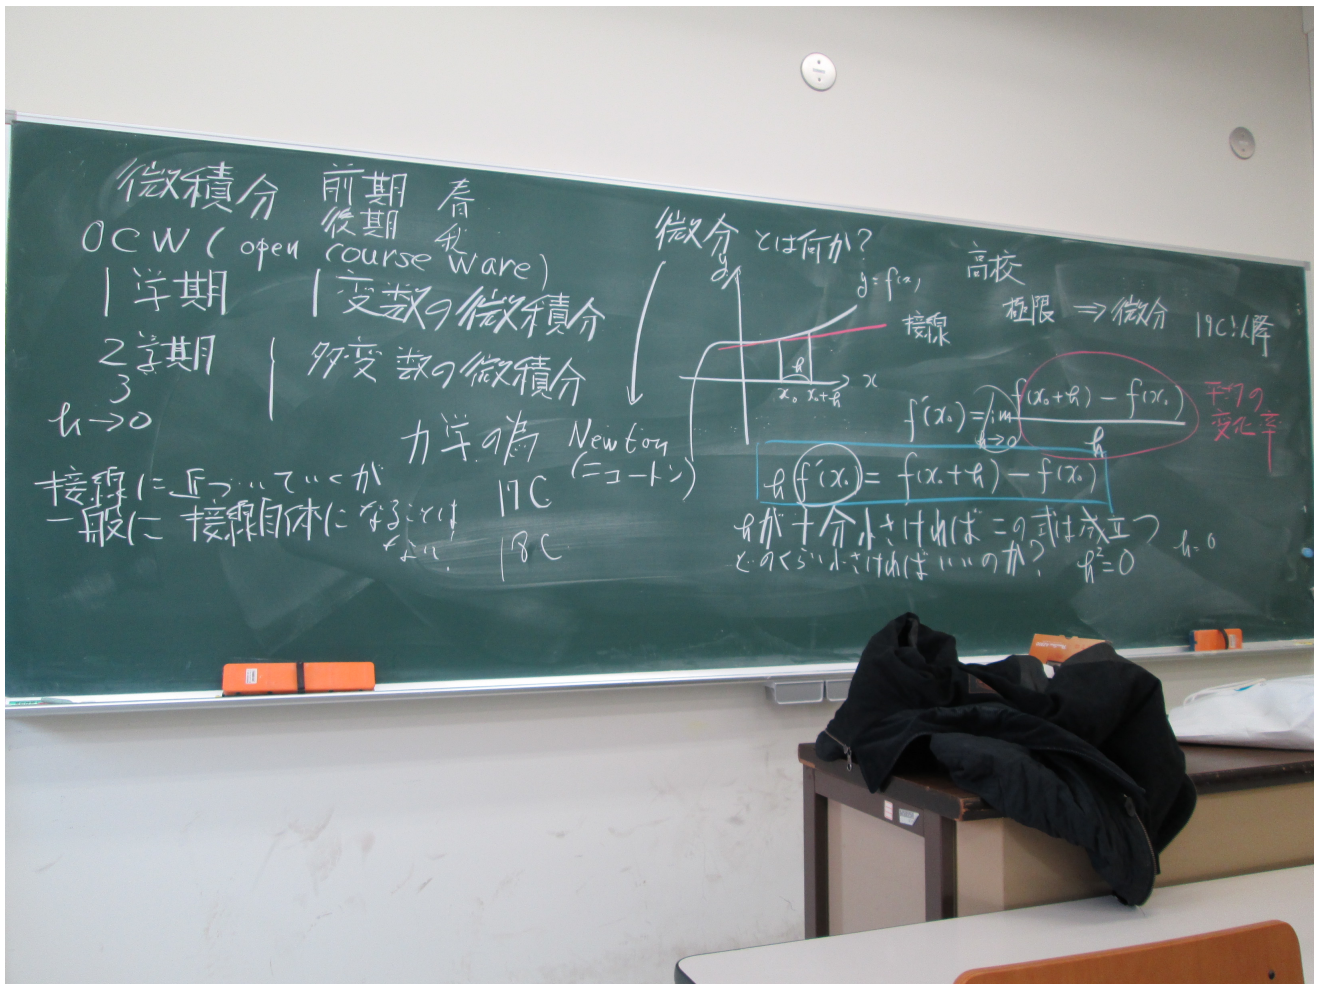 微積分 前期 春
後期 秋
OCW (open course ware)
1学期 1変数の微積分
2学期 多変数の微積分
3
h→0
力学の為 Newton
(ニュートン)
接線に近づいていくが
一般に接線自体になることは
ない!
17C
18C
微分とは何か?
y
y=f(x)
接線
h
x₀ x₀+h
x
高校
極限 ⇒ 微分 19C以降
f'(x₀)=lim h→0 f(x₀+h)-f(x₀) / h
平均の
変化率
h f'(x₀) = f(x₀+h) - f(x₀)
hが十分小さければこの式は成立つ
どのくらい小さければいいのか? h²=0
h=0